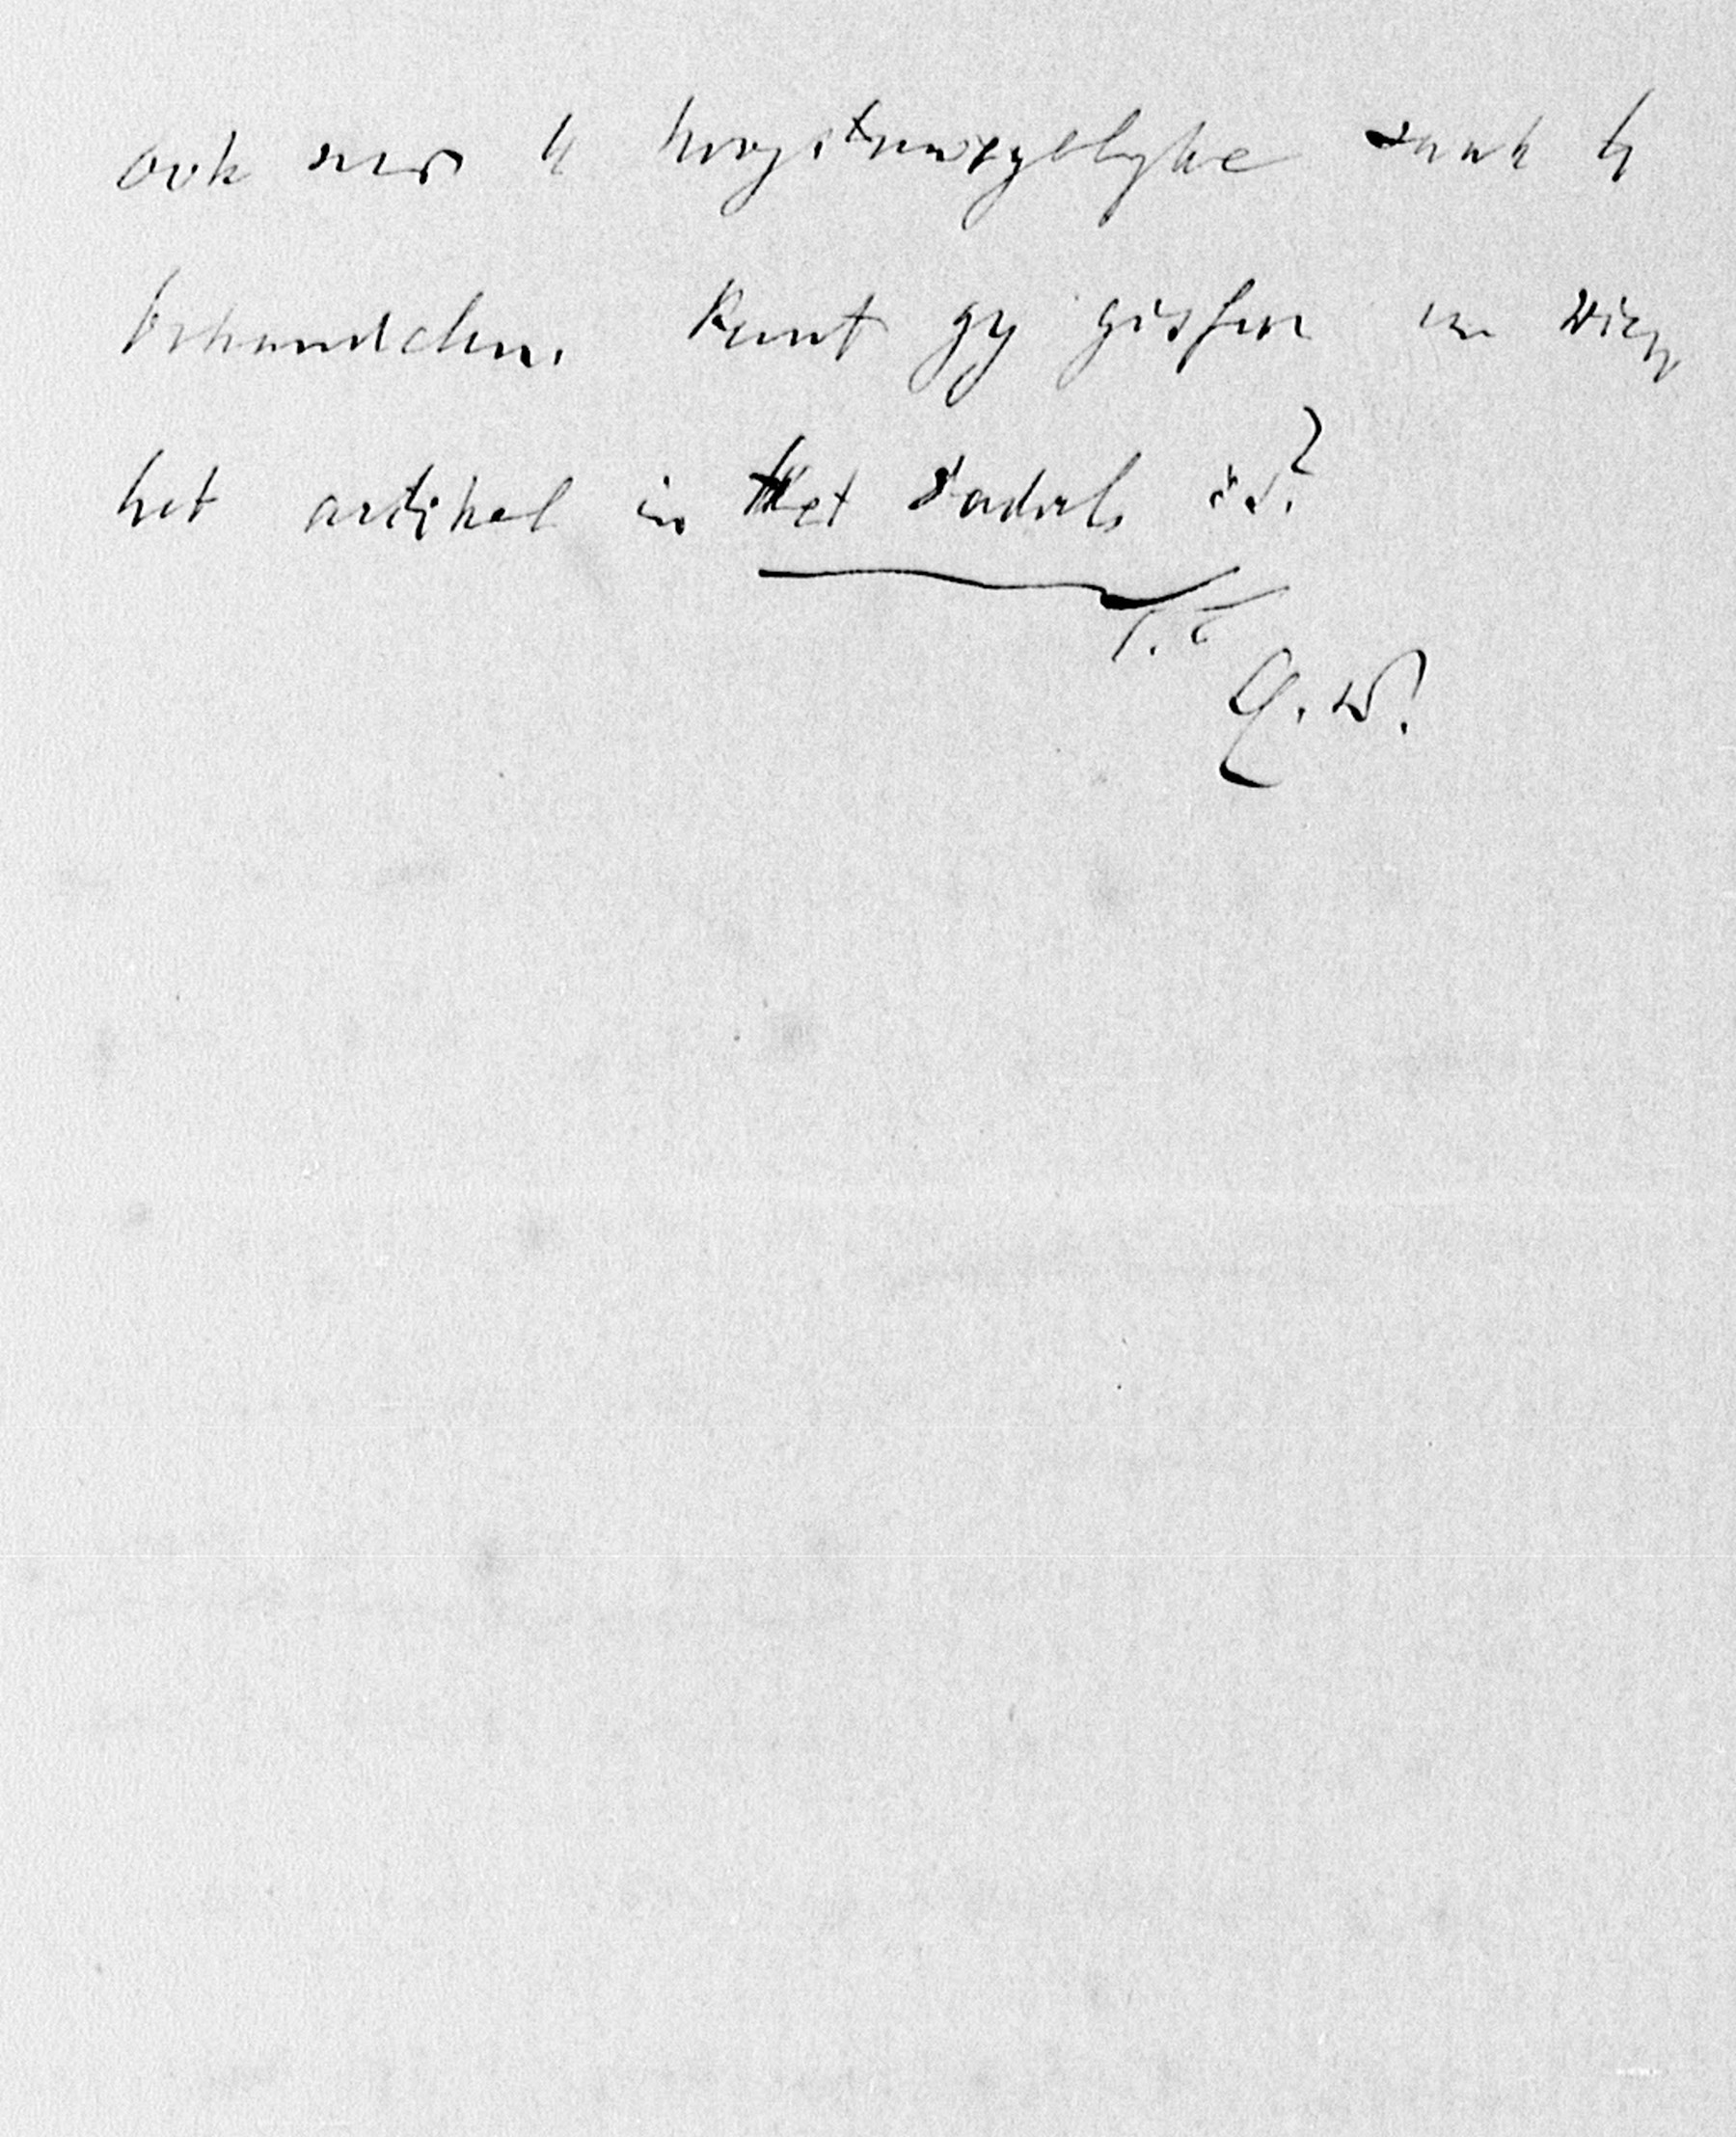 ook over de hoogstonwezenlyke zaak te
behandelen. Kunt gy gissen van wien
het artikel in Het Vaderl. is?
t.t.
C. W.